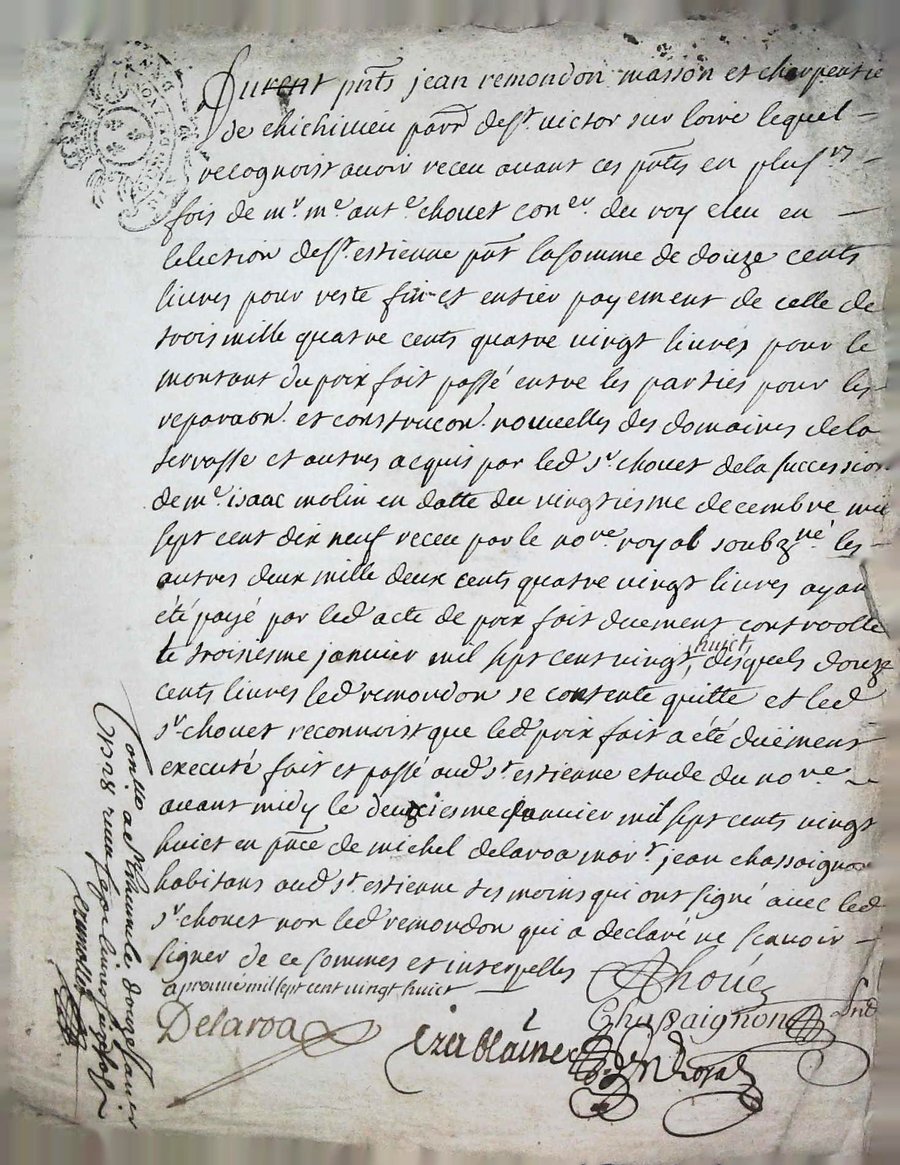 Furent pnts jean remondon masson et charpentie
de chichivieu parr de st victor sur loire lequel
recognoist avoir receu avant ces pntes en plusrs
fois de mr me ante chovet coner du roy eleu en
lelection de st estienne pnt la somme de douze cents
livres pour reste fin et entier payement de celle de
trois mille quatre cents quatre vingt livres pour le
montant du prix fait passé entre les parties pour les
reparaon et construcon nouvelles des domaines de la
terrasse et autres acquis par led sr chovet de la succession
de me isaac molin en datte du vingtiesme decembre mil
sept cent dix neuf receu par le nore royal soubzné les
autres deux mille deux cents quatre vingt livres ayan
été payé par led acte de prix fait duement controolle
le troisiesme janvier mil sept cent vingt huict, desquels douze
cents livres led remondon se contente quitte et led
sr chovet reconnoist que led prix fait a été duëment
executé fait et passé aud st estienne etude du nore
avant midy le deuxiesme janvier mil sept cents vingt
huict en pnce de michel delaroa et jean chassaignon
habitans aud st estienne tesmoins qui ont signé avec led
sr chovet non led remondon qui a declaré ne scavoir
signer de ce sommes et interpellés
aprouvé mil sept cent vingt huict
Chovéz
Delaroa
Chassaignon
nre royal
Con llé a St estienne le douze janvier
1728 receu sept livres